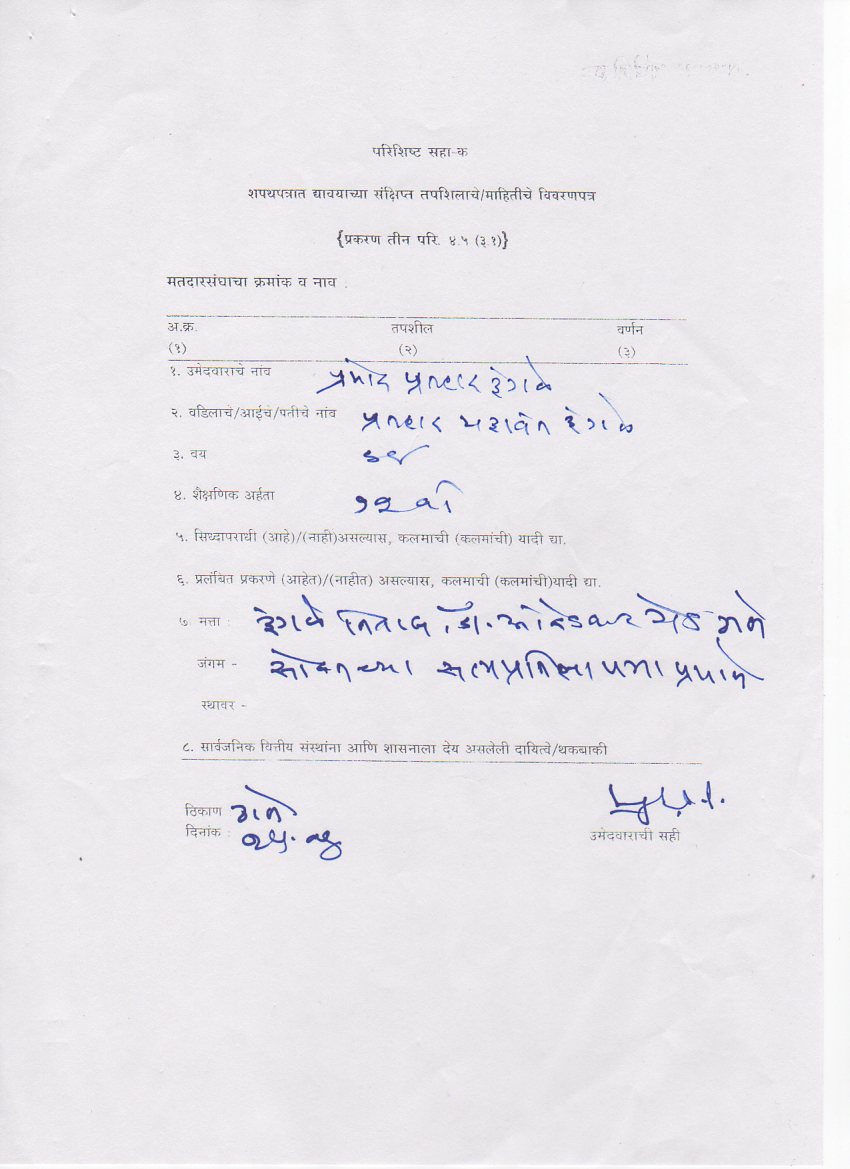 परिशिष्ट सहा-क
शपथपत्रात द्यावयाच्या संक्षिप्त तपशिलाचे/माहितीचे विवरणपत्र
{प्रकरण तीन परि. ४.५ (३.१)}
मतदारसंघाचा क्रमांक व नाव :
अ.क्र. तपशील वर्णन
(१) (२) (३)
१. उमेदवाराचे नांव प्रमोद प्रल्हाद इंगळे
२. वडिलाचे/आईचे/पतीचे नांव प्रल्हाद यशवंत इंगळे
३. वय
४. शैक्षणिक अर्हता १२ वी
५. सिध्दापराधी (आहे)/(नाही)असल्यास, कलमाची (कलमांची) यादी द्या.
६. प्रलंबित प्रकरणे (आहेत)/(नाहीत) असल्यास, कलमाची (कलमांची)यादी द्या.
७. मत्ता : इंगळे निवास, डॉ. आंबेडकर रोड ठाणे
जंगम - सोबतच्या सत्यप्रतिज्ञा पत्रा प्रमाणे
स्थावर -
८. सार्वजनिक वित्तीय संस्थांना आणि शासनाला देय असलेली दायित्वे/थकबाकी
ठिकाण ठाणे
दिनांक :
उमेदवाराची सही